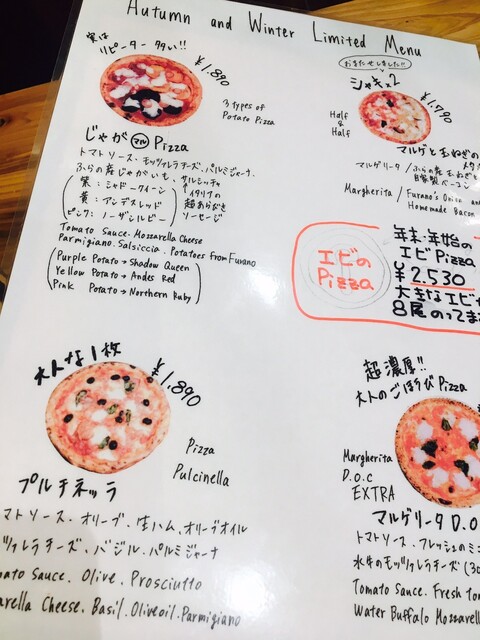 Autumn and Winter Limited Menu
実は
リピーター多い!!
¥1,890
3 types of
Potato Pizza
じゃが マル Pizza
トマトソース・モッツァレラチーズ・パルミジャーナ
ふらの産じゃがいも、サルシッチャ
紫:シャドークイーン
黄:アンデスレッド
ピンク:ノーザンルビー
↑イタリアの
超あらびき
ソーセージ
Tomato Sauce. Mozzarella Cheese
Parmigiano. Salsiccia. Potatoes from Furano
Purple Potato → Shadow Queen
Yellow Potato → Andes Red
Pink Potato → Northern Ruby
おまたせしました!!
シャキ×2
¥1,790
Half
&
Half
マルゲと玉ねぎの
マルゲリータ/ふらの産玉ねぎと
自家製ベーコン
Margherita / Furano's Onion and
Homemade Bacon
エビの
Pizza
年末・年始の
エビPizza
¥2,530
大きなエビが
8尾のってま
大人な1枚
¥1,890
Pizza
Pulcinella
プルチネッラ
マトソース・オリーブ、生ハム、オリーブオイル
ッツァレラチーズ、バジル・パルミジャーナ
mato Sauce. Olive. Prosciutto
zarella Cheese. Basil. Oliveoil. Parmigiano
超濃厚!!
大人のごほうびPizza
Margherita
D.O.C
EXTRA
マルゲリータ D.O
トマトソース・フレッシュのミニ
水牛のモッツァレラチーズ(30
Tomato Sauce. Fresh tom
Water Buffalo Mozzarell